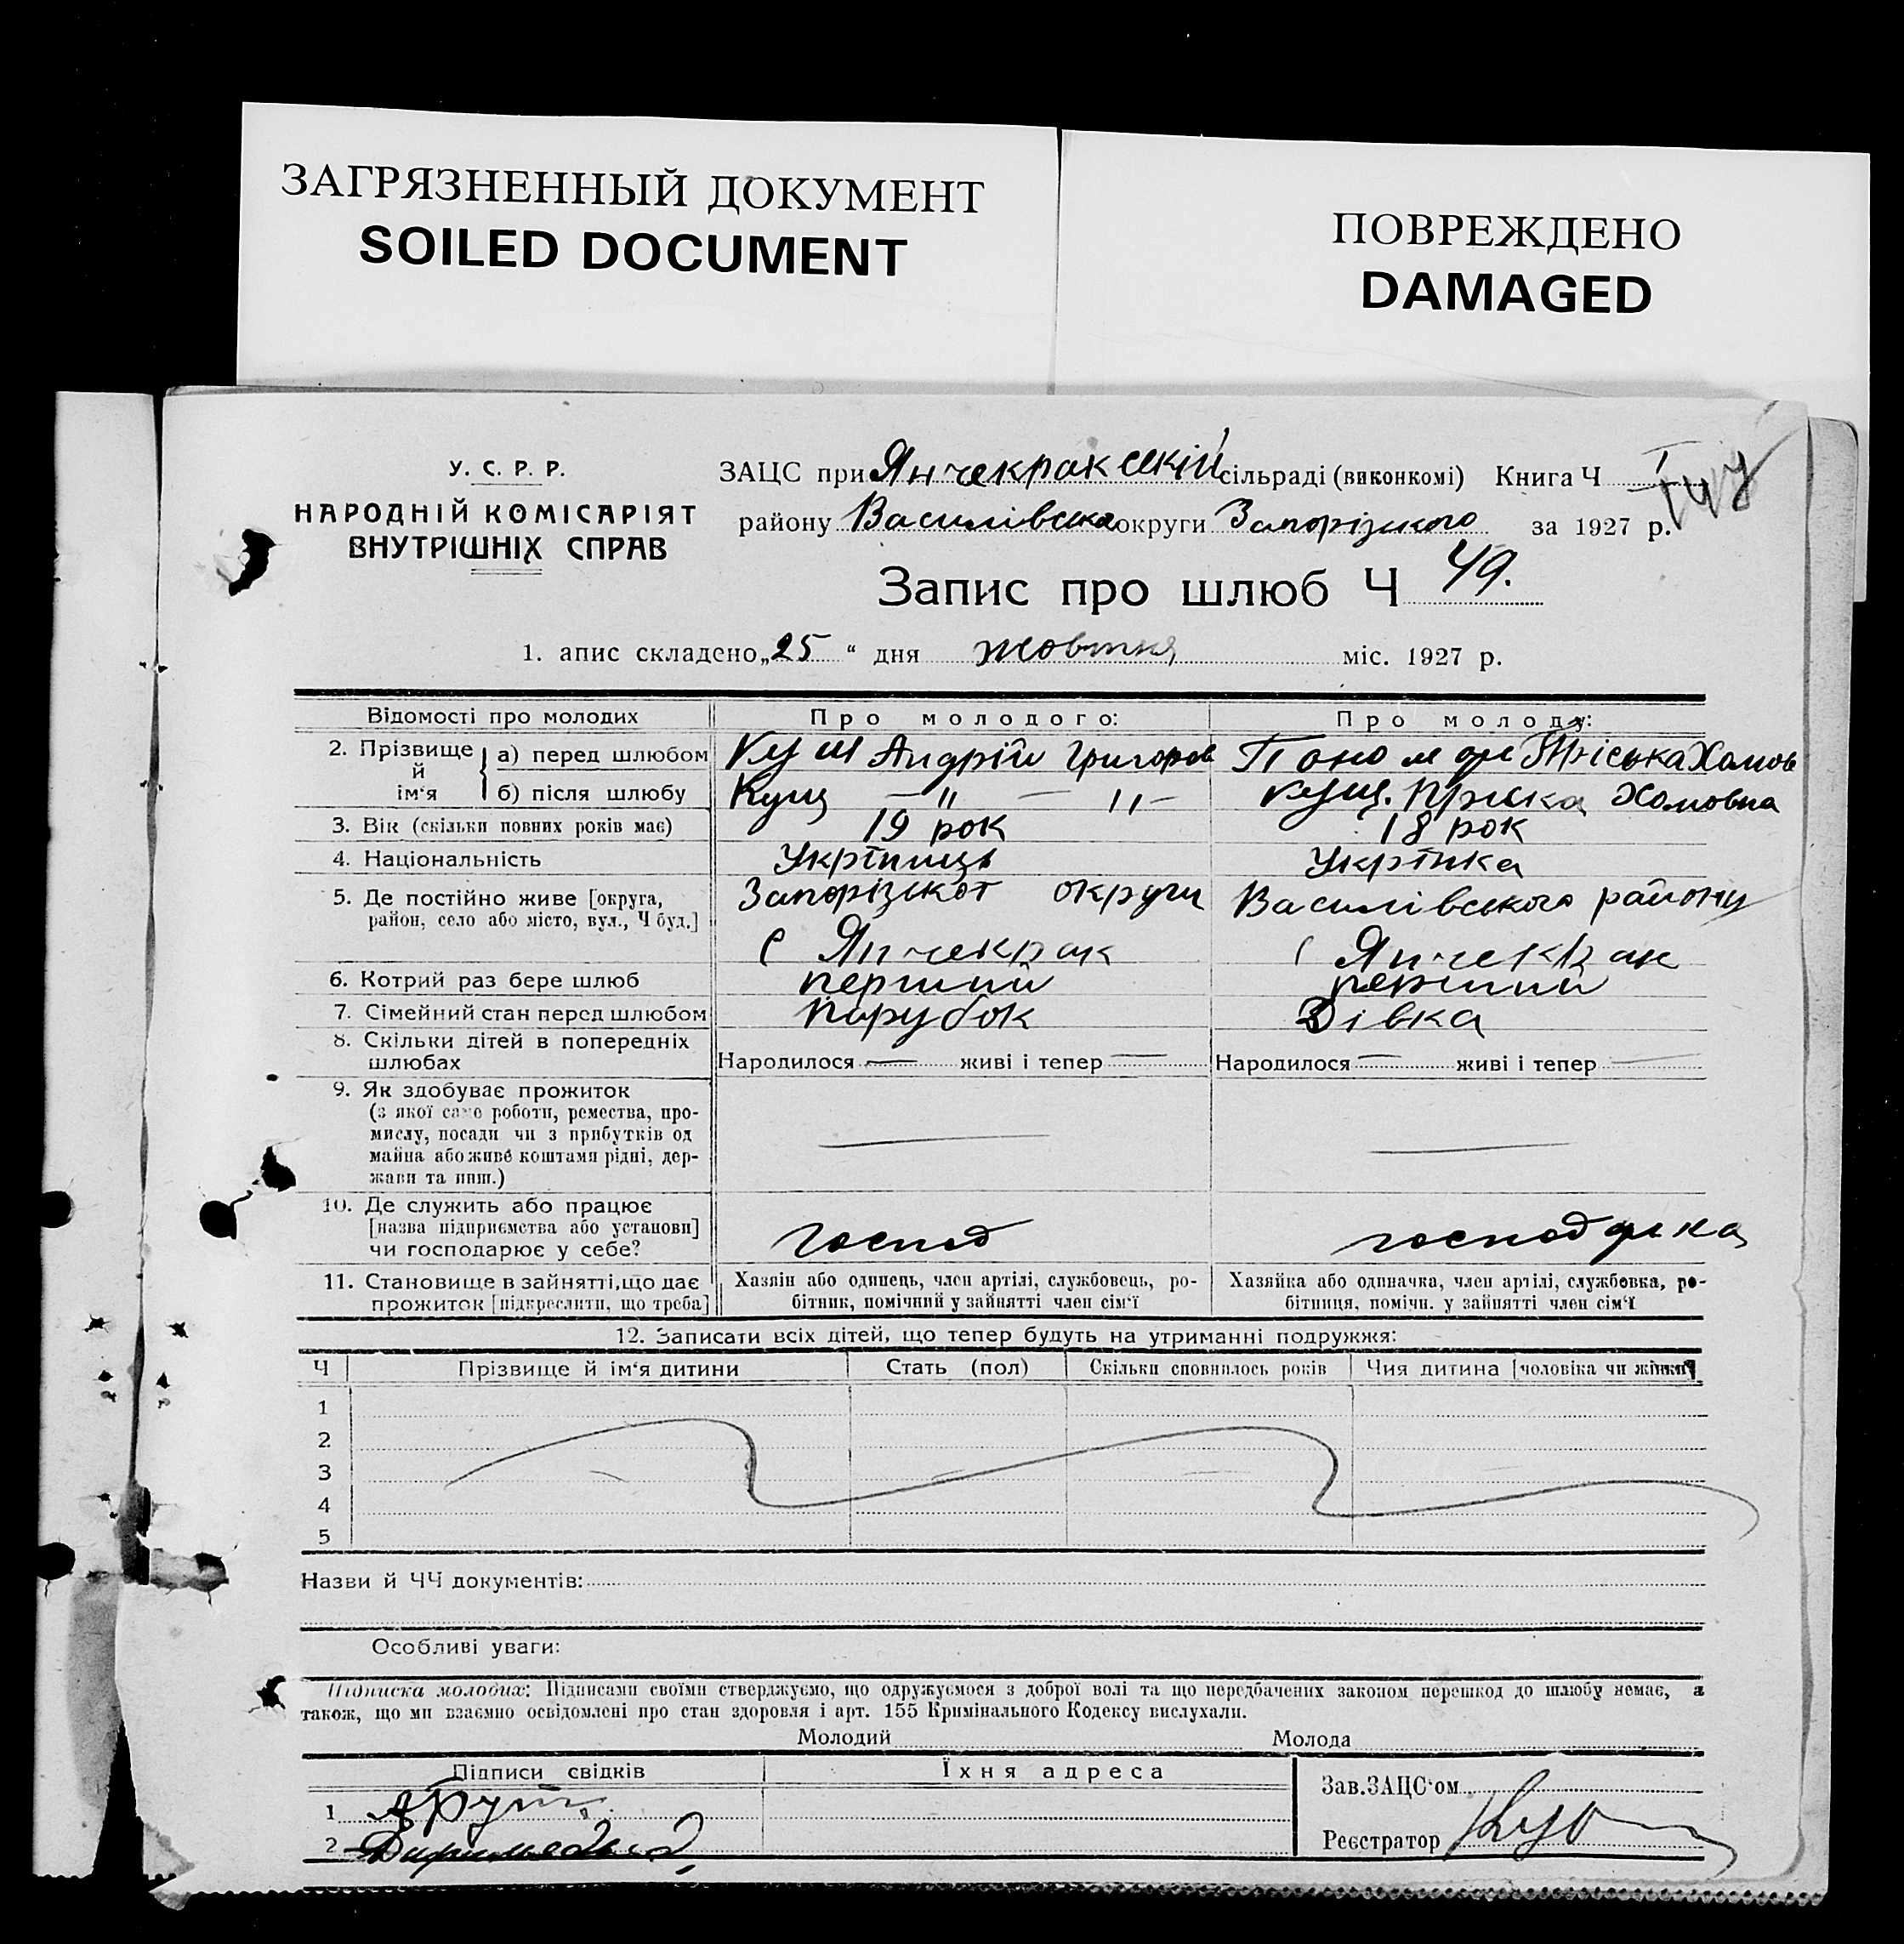 ЗАГРЯЗНЕННЫЙ ДОКУМЕНТ
SOILED DOCUMENT
ПОВРЕЖДЕНО
DAMAGED
У. С. Р. Р.
НАРОДНІЙ КОМІСАРІЯТ
ВНУТРІШНІХ СПРАВ
ЗАЦС при Янчекракський сільраді (виконкомі) Книга Ч I
району Василівська округи Запорізького за 1927 р.
Запис про шлюб Ч 49.
1. апис складено „25“ дня жовтня міс. 1927 р.
Відомості про молодих Про молодого: Про молоду:
2. Прізвище й ім‘я а) перед шлюбом Кущ Андрій Григоров Пономар Пріська Хомов
б) після шлюбу Кущ — " — " — Кущ. Пріська Хомовна
3. Вік (скільки повних років має) 19 рок 18 рок
4. Національність Укрїнець Укрїнка
5. Де постійно живе [округа, Запорізької округи Василівського району
район, село або місто, вул., Ч буд.]
с Янчекрак с Янчекрак
6. Котрий раз бере шлюб перший перший
7. Сімейний стан перед шлюбом Парубок Дівка
8. Скільки дітей в попередніх
шлюбах Народилося — живі і тепер — Народилося — живі і тепер —
9. Як здобуває прожиток
(з якої саме роботи, ремества, про-
мислу, посади чи з прибутків од
майна або живе коштами рідні, дер-
жави та инш.)
10. Де служить або працює
[назва підприємства або установи]
чи господарює у себе? господ господарка
11. Становище в зайнятті, що дає Хазяін або одинець, член артілі, службовець, ро- Хазяйка або одиначка, член артілі, службовка, ро-
прожиток [підкреслити, що треба] бітник, помічний у зайнятті член сім‘ї бітниця, помічн. у зайнятті член сім‘ї
12. Записати всіх дітей, що тепер будуть на утриманні подружжя:
Ч Прізвище й ім‘я дитини Стать (пол) Скільки сповнилось років Чия дитина [чоловіка чи жінки]
1
2
3
4
5
Назви й ЧЧ документів:
Особливі уваги:
Підписка молодих: Підписами своїми стверджуємо, що одружуємося з доброї волі та що передбачених законом перешкод до шлюбу немає, а
також, що ми взаємно освідомлені про стан здоровля і арт. 155 Кримінального Кодексу вислухали.
Молодий Молода
Підписи свідків Їхня адреса
Зав. ЗАЦС‘ом
1
2
Реєстратор